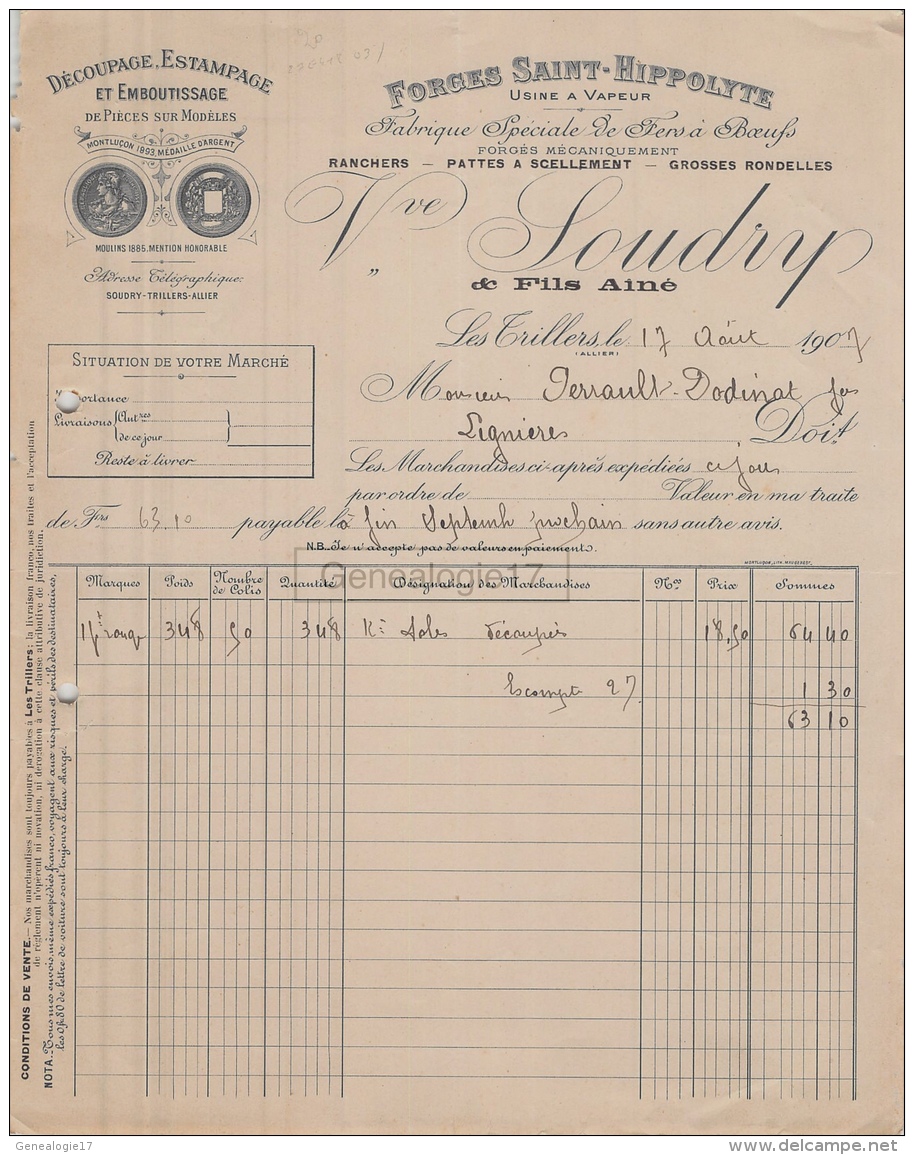 DÉCOUPAGE, ESTAMPAGE
ET EMBOUTISSAGE
DE PIÈCES SUR MODÈLES
MONTLUÇON 1893, MÉDAILLE D'ARGENT
MOULINS 1885. MENTION HONORABLE
Adresse Télégraphique:
SOUDRY-TRILLERS-ALLIER
FORGES SAINT-HIPPOLYTE
USINE A VAPEUR
Fabrique Spéciale de Fers à Bœufs
FORGÉS MÉCANIQUEMENT
RANCHERS — PATTES A SCELLEMENT — GROSSES RONDELLES
Vve Soudry
& Fils Ainé
Les Trillers, le 17 Août 1907
(ALLIER)
SITUATION DE VOTRE MARCHÉ
Importance
Livraisons Antres
de ce jour
Reste à livrer
Monsieur Perrault-Dodinat
Lignieres Doit
Les Marchandises ci-après expédiées ce jour
par ordre de Valeur en ma traite
de Frs 63.10 payable là fin Septemb prochain sans autre avis.
N.B. Je n'accepte pas de valeurs en paiements.
Genealogie17
Marques Poids Nombre de Colis Quantité Désignation des Marchandises Nos Prix Sommes
rouge 348 50 348 Ks Soles découpées 18,50 64 40
Escompte 2% 1 30
63 10
CONDITIONS DE VENTE.— Nos marchandises sont toujours payables à Les Trillers; la livraison franco, nos traites et l'acceptation
de règlement n'opèrent ni novation, ni dérogation à cette clause attributive de juridiction.
NOTA.— Tous mes envois, même expédiés franco, voyagent aux risques et périls des destinataires,
les 0f.80 de lettre de voiture sont toujours à leur charge.
Genealogie17
www.delcampe.net